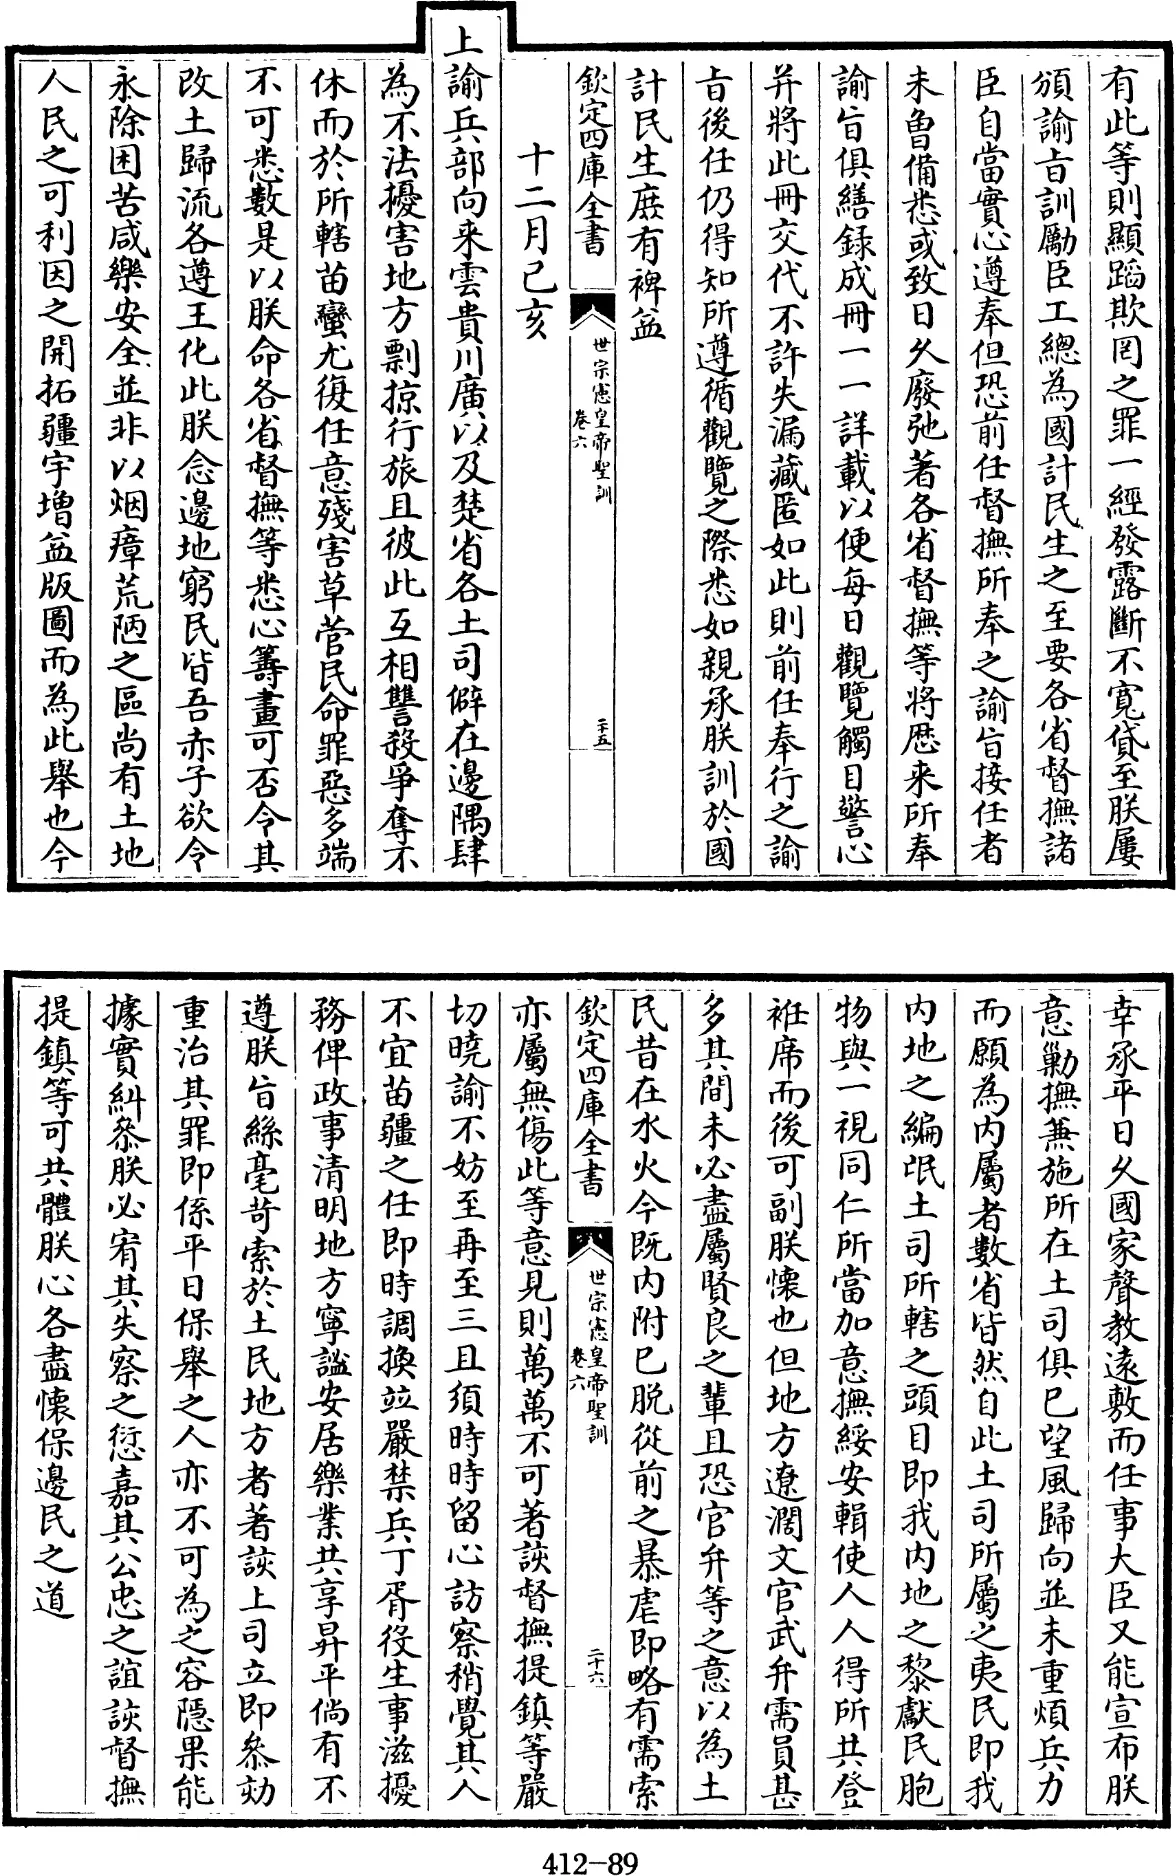 有此等則顯蹈欺罔之罪一經發露斷不寬貸至朕屢
頒諭㫖訓勵臣工總為國計民生之至要各省督撫諸
臣自當實心遵奉但恐前任督撫所奉之諭㫖接任者
未魯備悉或致日久廢弛著各省督撫等將歴来所奉
諭㫖俱繕錄成冊一一詳載以便每日觀覽觸目警心
并將此冊交代不許失漏藏匿如此則前任奉行之諭
㫖後任仍得知所遵循觀覽之際悉如親承朕訓於國
計民生庶有裨益
欽定四庫全書
世宗憲皇帝聖訓
卷六
二十五
十二月己亥
上諭兵部向来雲貴川廣以及楚省各土司僻在邊隅肆
為不法擾害地方剽掠行旅且彼此互相讐殺爭奪不
休而於所轄苗蠻尤復任意殘害草菅民命罪惡多端
不可悉數是以朕命各省督撫等悉心籌畫可否令其
改土歸流各遵王化此朕念邊地窮民皆吾赤子欲令
永除困苦咸樂安全並非以烟瘴荒陋之區尚有土地
人民之可利因之開拓疆宇增益版圖而為此舉也今
幸承平日久國家聲教遠敷而任事大臣又能宣布朕
意勦撫兼施所在土司俱已望風歸向並未重煩兵力
而願為内屬者數省皆然自此土司所屬之夷民即我
内地之編氓土司所轄之頭目即我内地之黎獻民胞
物與一視同仁所當加意撫綏安輯使人人得所共登
袵席而後可副朕懷也但地方遼濶文官武弁需員甚
多其間未必盡屬賢良之輩且恐官弁等之意以為土
民昔在水火今既内附已脱從前之暴虐即略有需索
欽定四庫全書
世宗憲皇帝聖訓
卷六
二十六
亦屬無傷此等意見則萬萬不可著該督撫提鎮等嚴
切曉諭不妨至再至三且須時時留心訪察稍覺其人
不宜苗疆之任即時調換並嚴禁兵丁胥役生事滋擾
務俾政事清明地方寧謐安居樂業共享昇平倘有不
遵朕㫖絲毫苛索於土民地方者著該上司立即叅劾
重治其罪即係平日保舉之人亦不可為之容隱果能
據實糾叅朕必宥其失察之愆嘉其公忠之誼該督撫
提鎮等可共體朕心各盡懷保邊民之道
412-89